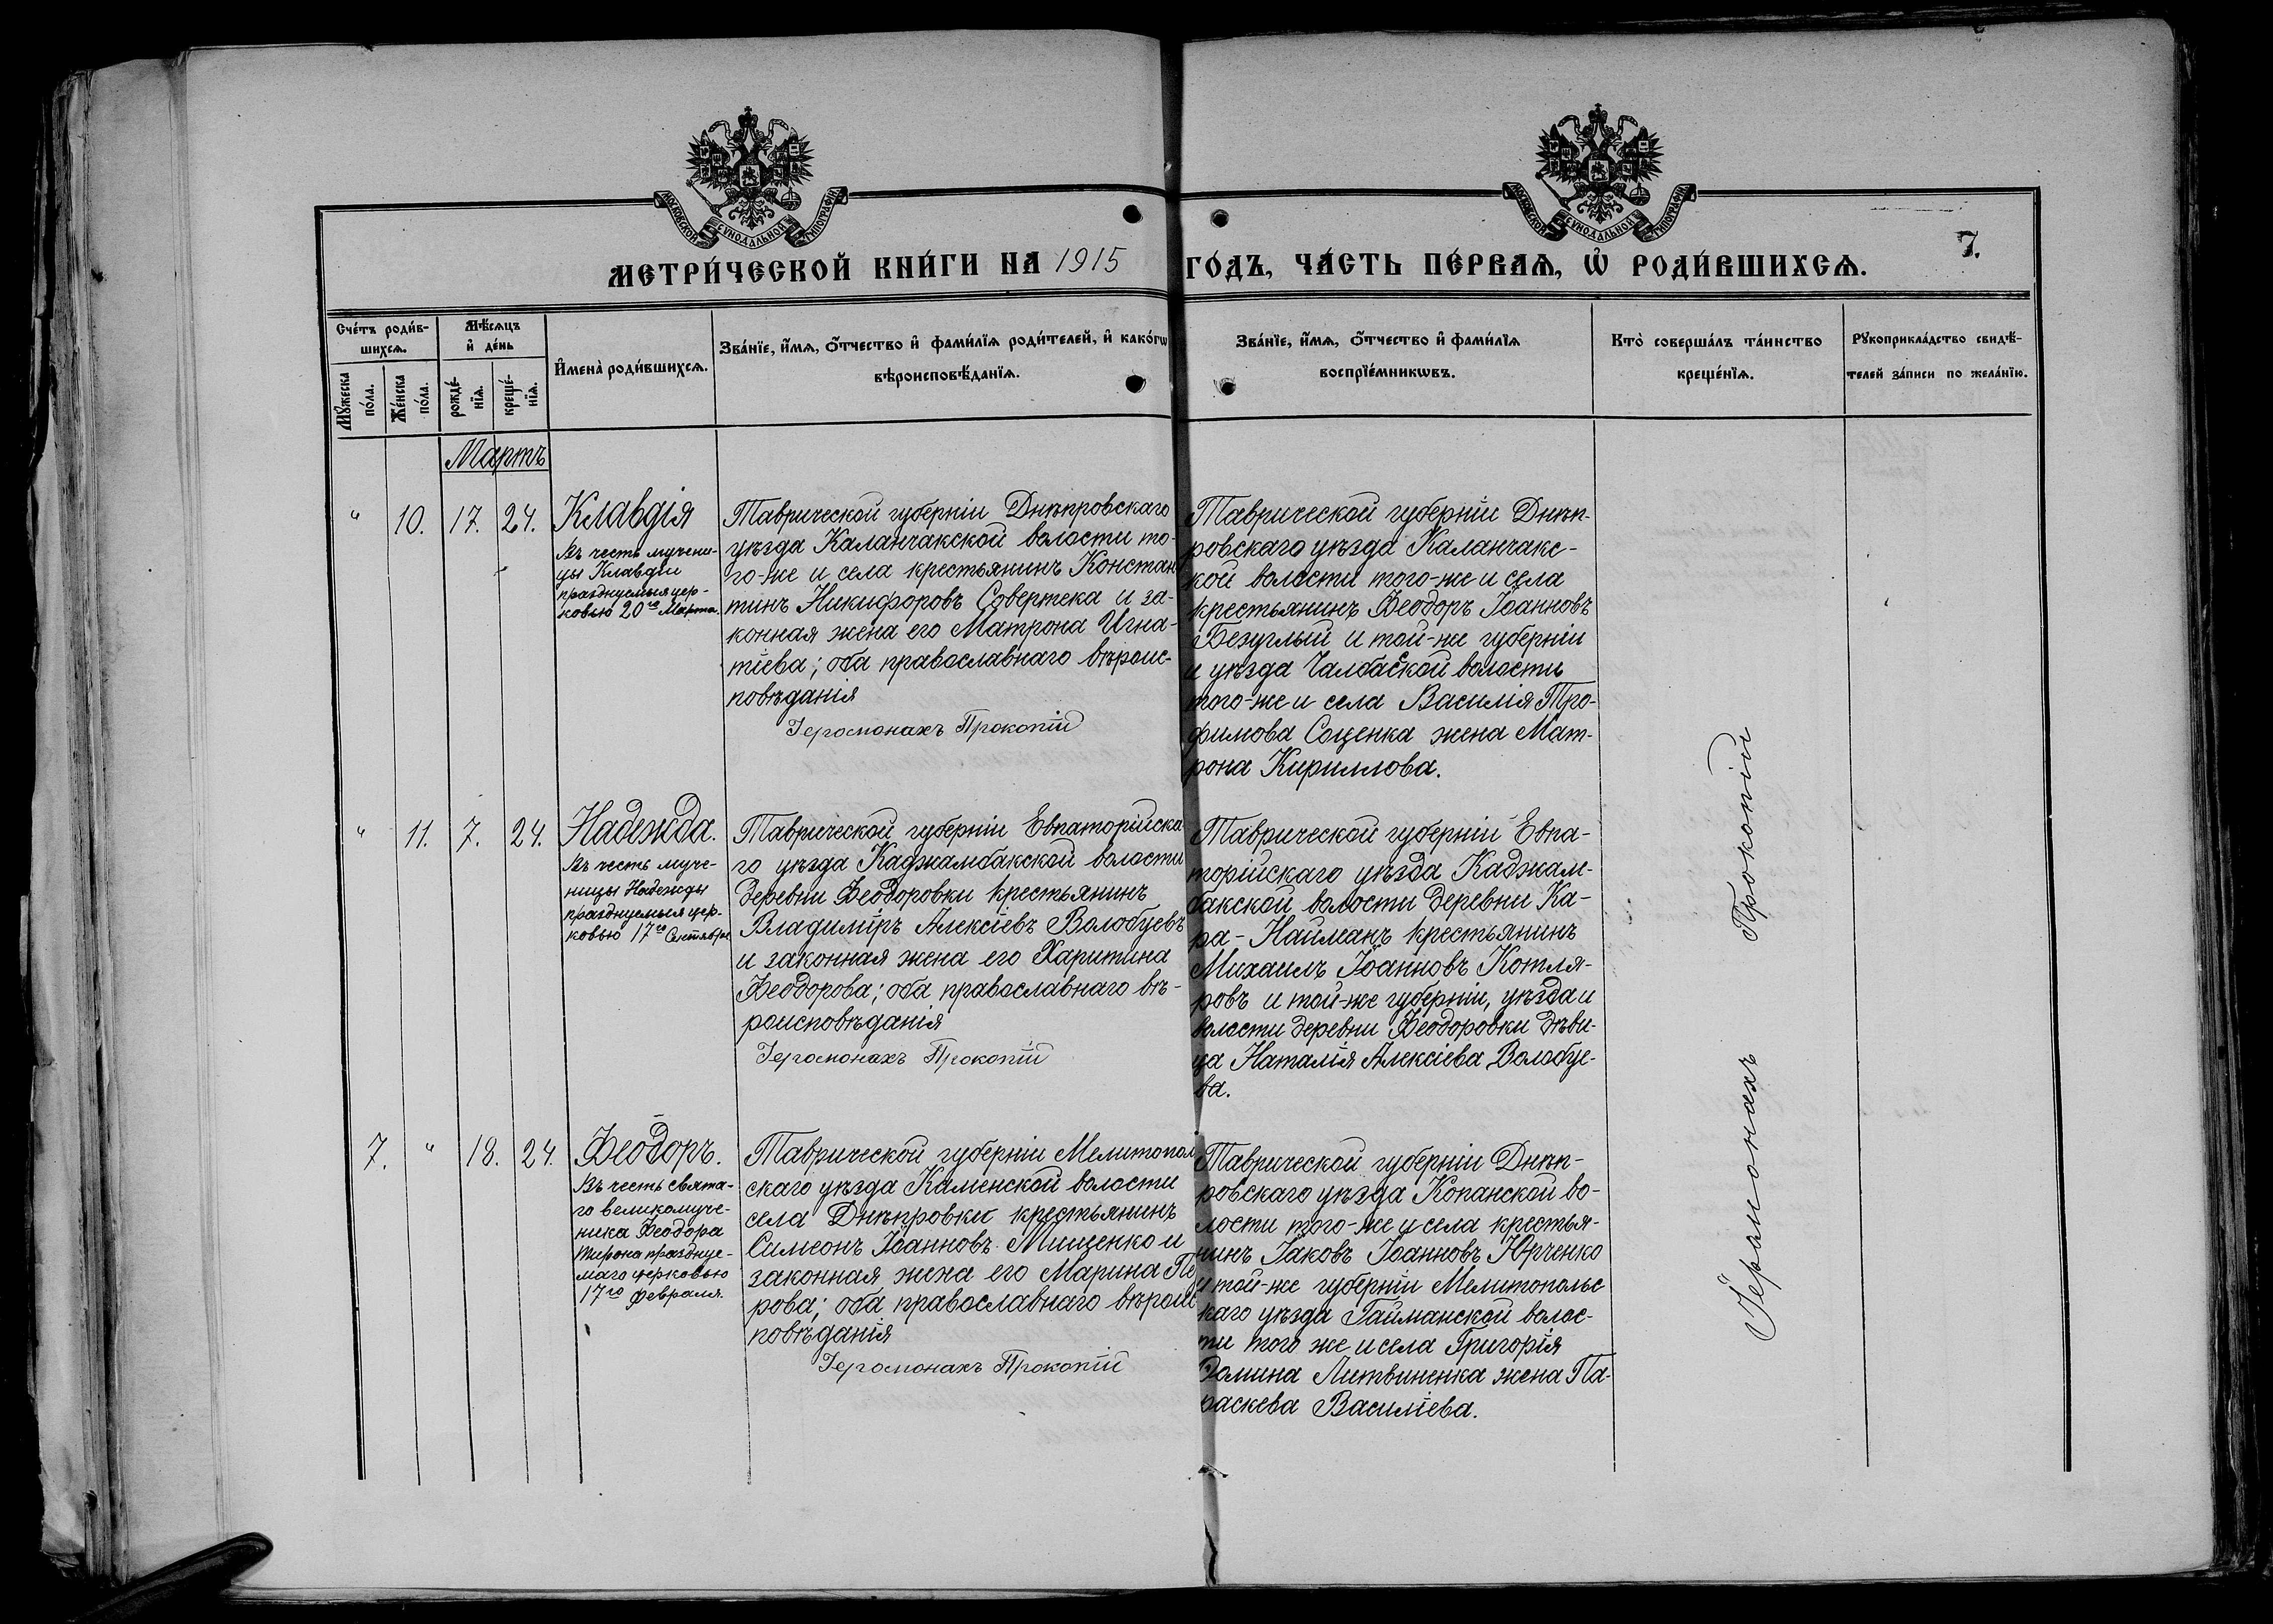 МОСКОВСКОЙ СУНОДАЛЬНОЙ ТИПОГРАФІИ
МОСКОВСКОЙ СУНОДАЛЬНОЙ ТИПОГРАФІИ
МЕТРИ́ЧЕСКОЙ КНИ́ГИ НА 1915 ГО́ДЪ, ЧА́СТЬ ПЕ́РВАѦ, Ѡ҆ РОДИ́ВШИХСѦ.
7.
Сче́тъ роди́в-
шихсѧ.
Мꙋ́жеска
по́ла.
Же́нска
по́ла.
Мѣ́сѧцъ
и҆ де́нь
рожде́-
нїѧ.
креще́-
нїѧ.
И҆мена̀ роди́вшихсѧ.
Зва́нїе, и҆́мѧ, ѻ҆́тчество и҆ фами́лїѧ роди́телей, и҆ како́гѡ
вѣроисповѣ́данїѧ.
Зва́нїе, и҆́мѧ, ѻ҆́тчество и҆ фами́лїѧ
воспрїе́мникѡвъ.
Кто̀ соверша́лъ та́инство
креще́нїѧ.
Рꙋкоприкла́дство свидѣ́-
телей за́писи по жела́нїю.
Мартъ
" 10. 17. 24.
Клавдія
Въ честь мучени-
цы Клавдіи
празднуемыя цер-
ковью 20го Марта.
Таврической губерніи Днѣпровскаго
уѣзда Каланчакской волости то-
го-же и села крестьянинъ Констан
тинъ Никифоровъ Совертека и за-
конная жена его Матрона Игна-
тіева; оба православнаго вѣроис-
повѣданія
Іеромонахъ Прокопій
Таврической губерніи Днѣп-
ровскаго уѣзда Каланчакс-
кой волости того-же и села
крестьянинъ Ѳеодоръ Іоанновъ
Безуглый и той-же губерніи
и уѣзда Чалбаской волости
того-же и села Василія Тро-
фимова Соценка жена Мат-
рона Кириллова.
" 11. 7. 24.
Надежда.
Въ честь муче-
ницы Надежды
празднуемыя цер-
ковью 17го Сентября
Таврической губерніи Евпаторійска
го уѣзда Каджамбакской волости
деревни Ѳеодоровки крестьянинъ
Владиміръ Алексіевъ Волобуевъ
и законная жена его Харитина
Ѳеодорова; оба православнаго вѣ-
роисповѣданія
Іеромонахъ Прокопій
Таврической губерніи Евпа-
торійскаго уѣзда Каджам-
бакской волости деревни Ка-
ра-Найманъ крестьянинъ
Михаилъ Іоанновъ Котля-
ровъ и той-же губерніи, уѣзда и
волости деревни Ѳеодоровки дѣви-
ца Наталія Алексіева Волобуе-
ва.
7. " 18. 24.
Ѳеодоръ.
Въ честь свята-
го великомуче-
ника Ѳеодора
Тирона праздуе-
маго церковью
17го Февраля.
Таврической губерніи Мелитопол
скаго уѣзда Каменской волости
села Днѣпровки крестьянинъ
Симеонъ Іоанновъ Мищенко и
законная жена его Марина Пе
рова; оба православнаго вѣроис
повѣданія
Іеромонахъ Прокопій
Таврической губерніи Днѣп-
ровскаго уѣзда Копанской во-
лости того-же и села крестья-
нинъ Іаковъ Іоанновъ Юрченко
и той-же губерніи Мелитопольс
каго уѣзда Гайманской волос-
ти того же и села Григорія
Ѳомина Литвиненка жена Па-
раскева Василіева.
Іеромонахъ Прокопій